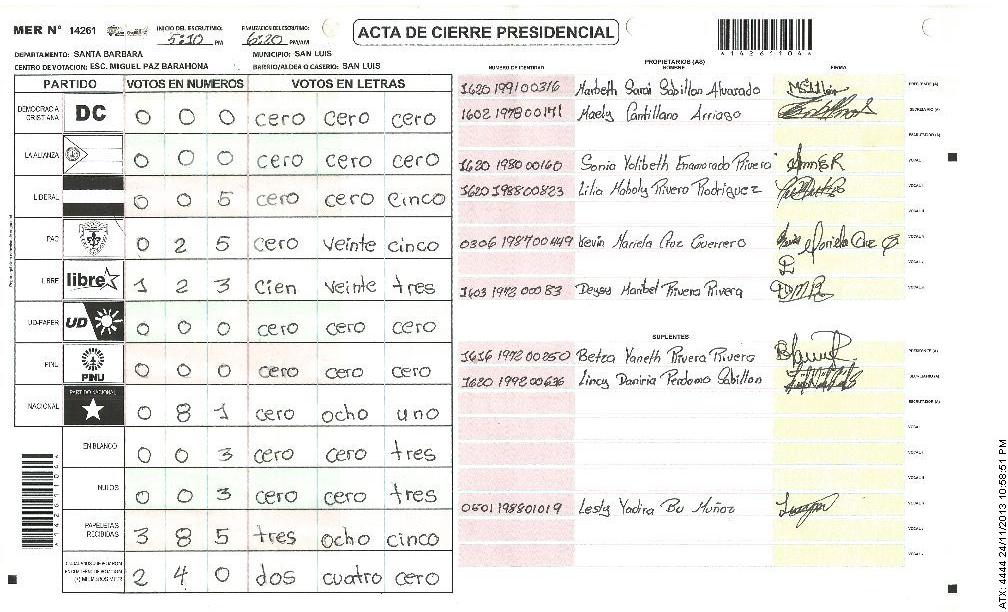 MER N° 14261
INICIO DEL ESCRUTINIO: 5:10 PM
FINALIZACION DEL ESCRUTINIO: 6:20 PM/AM
ACTA DE CIERRE PRESIDENCIAL
DEPARTAMENTO: SANTA BARBARA MUNICIPIO: SAN LUIS
CENTRO DE VOTACION: ESC. MIGUEL PAZ BARAHONA BARRIO/ALDEA O CASERIO: SAN LUIS
PARTIDO VOTOS EN NUMEROS VOTOS EN LETRAS
DEMOCRACIA CRISTIANA DC 0 0 0 cero cero cero
LA ALIANZA 0 0 0 cero cero cero
LIBERAL 0 0 5 cero cero cinco
PAC 0 2 5 cero veinte cinco
LIBRE libre 1 2 3 cien veinte tres
UD-FAPER UD 0 0 0 cero cero cero
PINU PINU 0 0 0 cero cero cero
NACIONAL PARTIDO NACIONAL 0 8 1 cero ocho uno
EN BLANCO 0 0 3 cero cero tres
NULOS 0 0 3 cero cero tres
PAPELETAS RECIBIDAS 3 8 5 tres ocho cinco
(+) MIEMBROS MER 2 4 0 dos cuatro cero
PROPIETARIOS (AS)
NUMERO DE IDENTIDAD NOMBRE FIRMA
1620 1991 00316 Marbeth Sarai Sabillon Alvarado
1602 1978 00171 Maely Cantillano Arriaga
1620 1980 00160 Sonia Yolibeth Enamorado Rivera
1620 1988 00823 Lilia Maboly Rivero Rodriguez
0306 1987 00449 Kevin Mariela Cruz Guerrero
1603 1972 00083 Deysy Maribel Rivera Rivera
SUPLENTES
1616 1992 00250 Betza Yaneth Rivera Rivera
1620 1992 00636 Lincy Daniria Perdomo Sabillon
0501 1988 01019 Lesly Yadira Bu Muñoz
4142611044
ATX: 4444 24/11/2013 10:58:51 PM